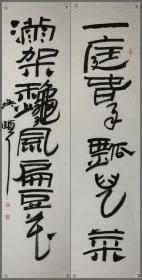 一庭春雨瓢兒菜
滿架龝風扁豆花